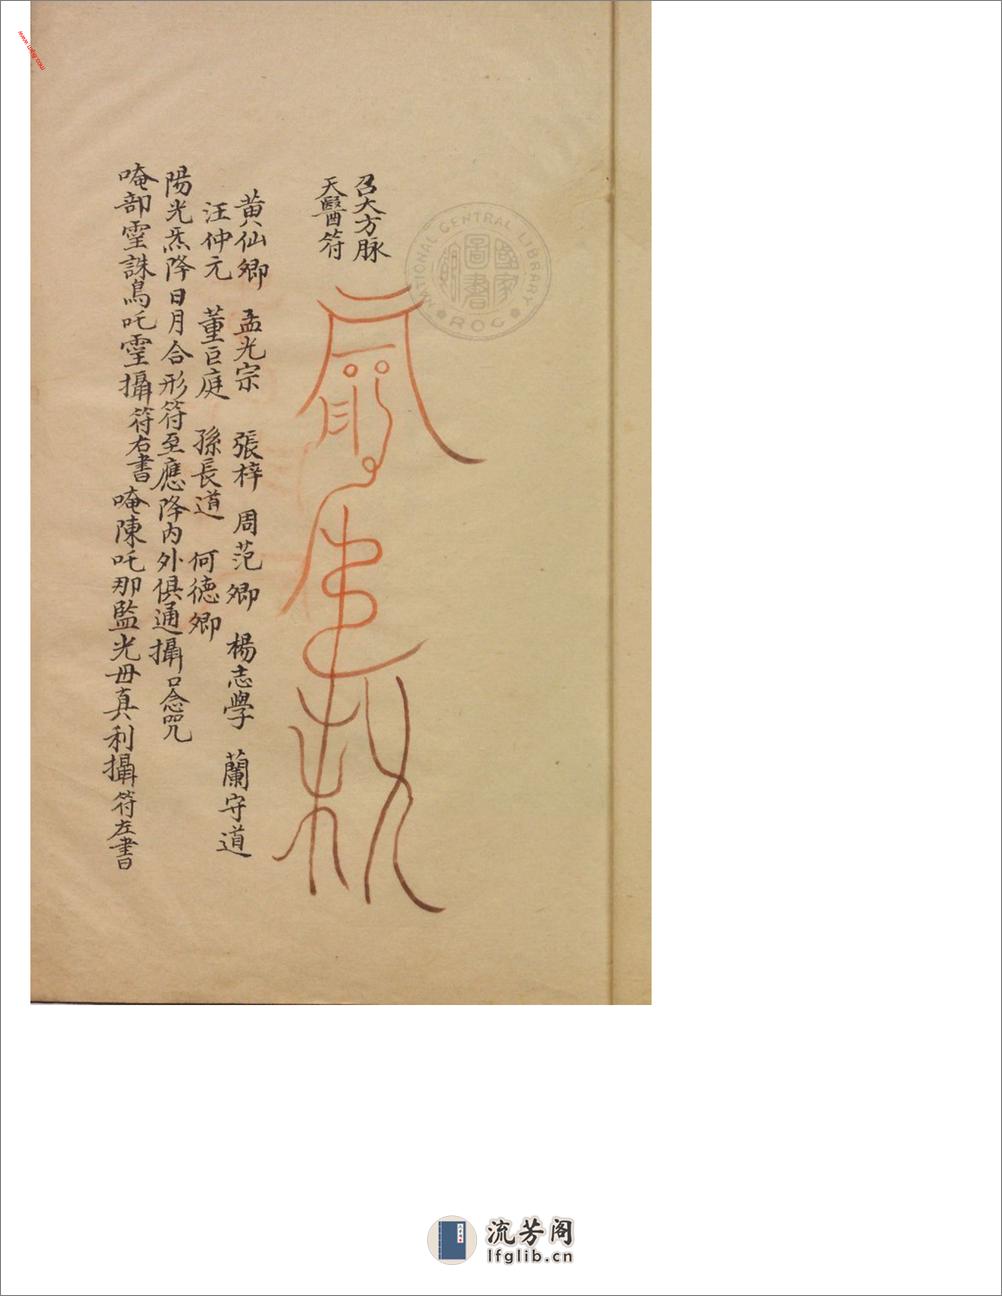 召大方脉
天醫符
黄仙卿 孟光宗 張梓 周范卿 楊志學 蘭守道
汪仲元 董巨庭 孫長道 何德卿
陽光炁降日月合形符至應降内外俱通攝口念咒
唵部霻誅鳥吒霻攝符右書 唵陳吒那監光毋真利攝符左書
NATIONAL CENTRAL LIBRARY
ROC
國家圖書館
www.tufsg.com
流芳阁
lfglib.cn